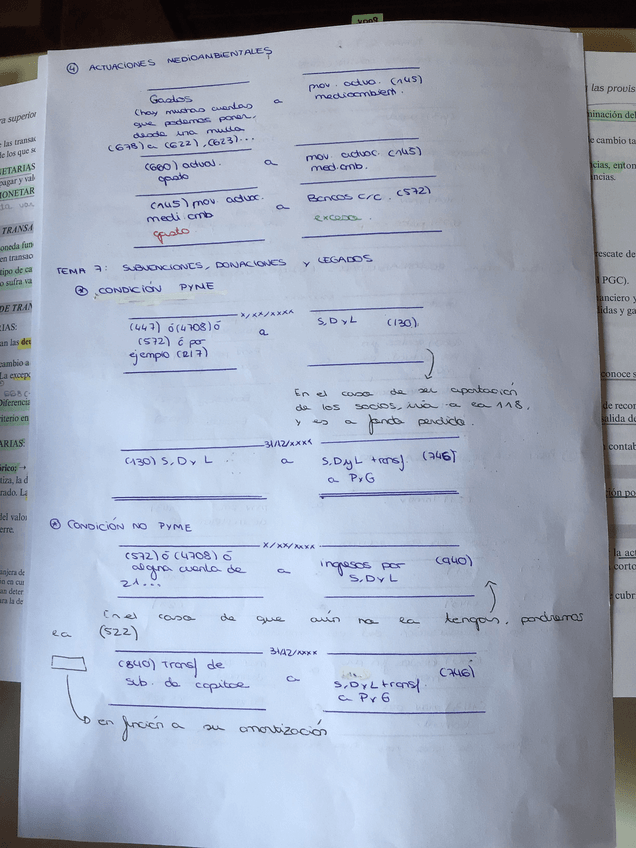 ④ ACTUACIONES MEDIOAMBIENTALES
Gastos
(hay muchas cuentas
que podemos poner,
desde una multa
(678) a (622), (623)...
a
prov. actua. (145)
medioambient.
(660) actual.
gasto
a
prov. actuac. (145)
med.amb.
(145) prov. actuac.
medi.amb
gasto
a
Bancos c/c. (572)
exceso.
TEMA 7: SUBVENCIONES, DONACIONES Y LEGADOS
* CONDICIÓN PYME
x/xx/xxxx
(447) ó (4708) ó
(572) ó por
ejemplo (217)
a
S, D y L (130).
En el caso de ser aportación
de los socios, iría a la 118,
y es a fondo perdido.
31/12/xxxx
(130) S, D y L
a
S, D y L transf. (746)
a PyG
* CONDICIÓN NO PYME
x/xx/xxxx
(572) ó (4708) ó
alguna cuenta de
21...
a
ingresos por (940)
S, D y L
En el caso de que aún no la tengas, pondremos
la (522)
31/12/xxxx
(840) Transf de
sub. de capital
a
S, D y L transf. (746)
a PyG
en función a su amortización
las provis
minación del
e cambio ta
ncias, enton
ncias.
rescate de
PGC).
nanciero y
lidas y ga
conoce s
de recor
salida de
contab
ión po
la act
corto
cubr
ra superior
e las transac
IETARIAS
pagar y val
MONETAR
TRANSA
oneda fun
en transac
tipo de ca
o sufra va
DE TRAN
IAS:
an las
cambio a
La excep
Diferencia
riterio en
ARIAS:
rico;
tiza, la d
rado. La
del valor
erre.
anjera de